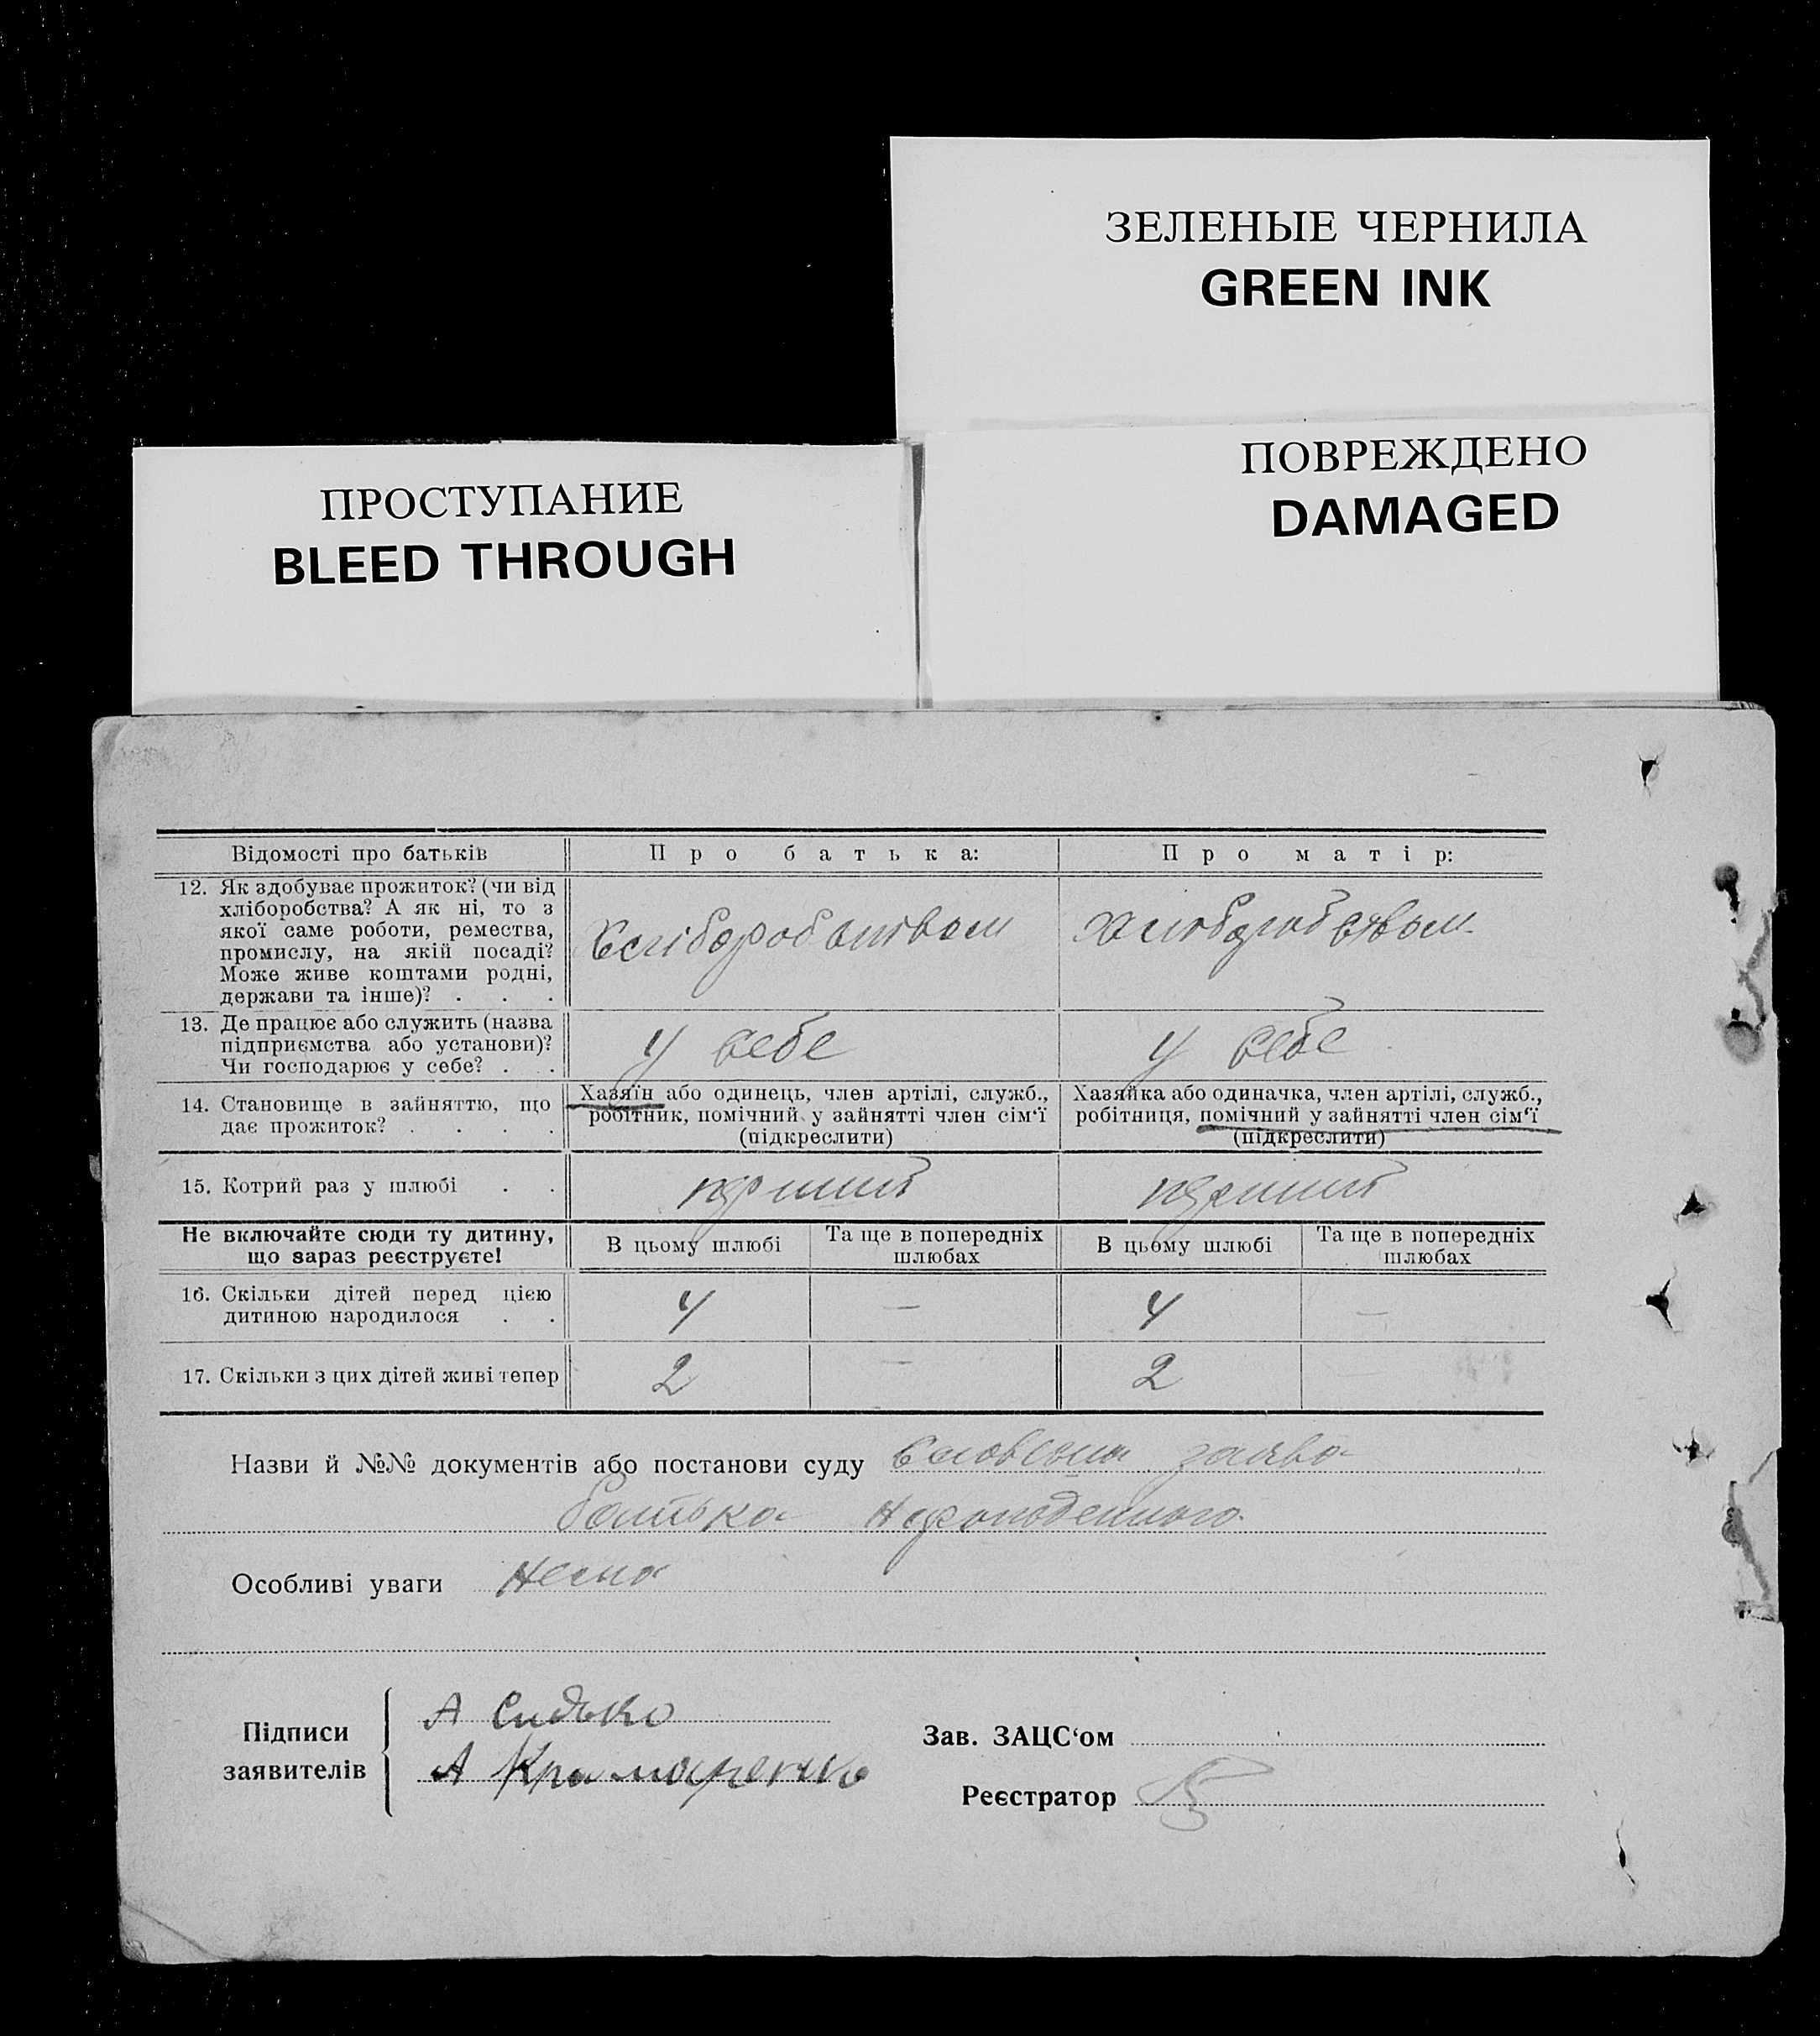 ЗЕЛЕНЫЕ ЧЕРНИЛА
GREEN INK
ПОВРЕЖДЕНО
DAMAGED
ПРОСТУПАНИЕ
BLEED THROUGH
Відомості про батьків
Про батька:
Про матір:
12. Як здобуває прожиток? (чи від
хліборобства? А як ні, то з
якої саме роботи, ремества,
промислу, на якій посаді?
Може живе коштами родні,
держави та інше)? . . .
Хліборобством
Хліборобством
13. Де працює або служить (назва
підприємства або установи)?
Чи господарює у себе? . .
у себе
у себе
14. Становище в зайняттю, що
дає прожиток? . . . .
Хазяїн або одинець, член артілі, служб.,
робітник, помічний у зайнятті член сім‘ї
(підкреслити)
Хазяйка або одиначка, член артілі, служб.,
робітниця, помічний у зайнятті член сім‘ї
(підкреслити)
15. Котрий раз у шлюбі . .
перший
перший
Не включайте сюди ту дитину,
що зараз реєструєте!
В цьому шлюбі
Та ще в попередніх
шлюбах
В цьому шлюбі
Та ще в попередніх
шлюбах
16. Скільки дітей перед цією
дитиною народилося . .
4
—
4
—
17. Скільки з цих дітей живі тепер
2
—
2
Назви й №№ документів або постанови суду Словесна заява
батька народженого
Особливі уваги нема
Підписи
заявителів
А Сидько
А Крамаренко
Зав. ЗАЦС‘ом
Реєстратор